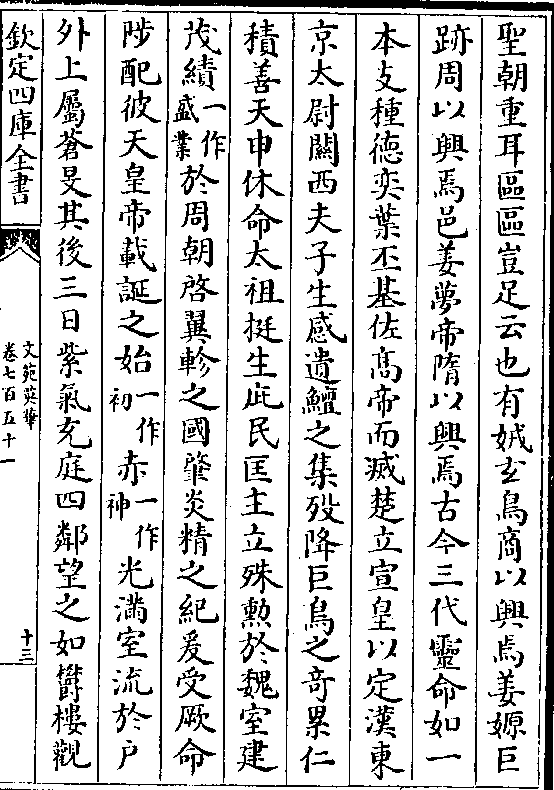 聖朝重耳區區豈足云也有娀𤣥鳥商以興焉姜嫄巨
跡周以興焉邑姜夢帝隋以興焉古今三代靈命如一
本支種德奕葉丕基佐高帝而滅楚立宣皇以定漢東
京太尉關西夫子生感遺鱣之集歿降巨鳥之竒累仁
積善天申休命太祖挺生庇民匡主立殊勲於魏室建
茂績一作盛業於周朝啓翼軫之國肇炎精之紀爰受厥命
陟配彼天皇帝載誕之始一作初赤一作神光滿室流於户
外上屬蒼旻其後三日紫氣充庭四鄰望之如鬱樓觀
欽定四庫全書
文苑英華
卷七百五十一
十三